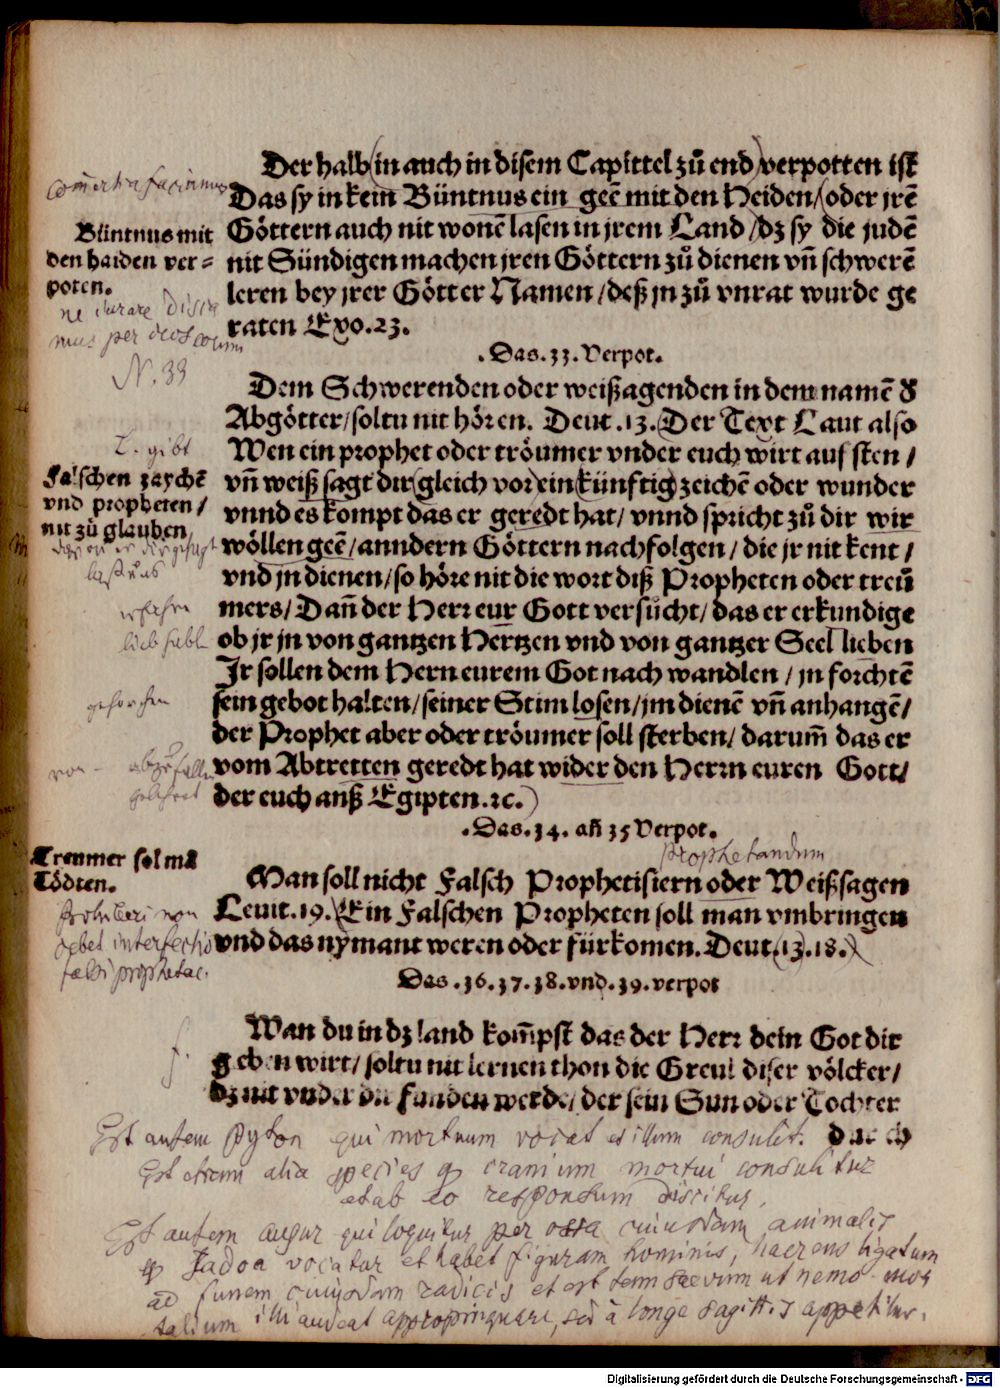 Der halb (in auch in disem Capittel zů end) verpotten ist
Das sy in kein Büntnus ein geē mit den Heiden/ (oder jrē
Göttern auch nit wonē lasen in jrem Land /dz sy die judē
nit Sündigen machen jren Göttern zů dienen vñ schwerē
leren bey jrer Götter Namen /deß jn zů vnrat wurde ge
raten Exo.23.
Büntnus mit
den haiden ver=
poten.
ne iurare
mus per deos eorum
N. 33
.Das.33.Verpot.
Dem Schwerenden oder weißagenden in dem namē d
Abgötter/soltu nit hören. Deut.13. (Der Text Laut also
Wen ein prophet oder tröumer vnder euch wirt auf sten /
vñ weiß sagt dir (gleich vor) ein (künftig) zeichē oder wunder
vnnd es kompt das er geredt hat/ vnnd spricht zů dir wir
wöllen geē/ anndern Göttern nachfolgen / die jr nit kent /
vnd jn dienen/so höre nit die wort diß Propheten oder treů
mers/ Dañ der Herr eur Gott versůcht/ das er erkundige
ob jr jn von gantzen Hertzen vnd von gantzer Seel lieben
Jr sollen dem Hern eurem Got nach wandlen / jn forchtē
sein gebot halten/seiner Stim losen/jm dienē vñ anhangē/
der Prophet aber oder tröumer soll sterben/ darum̄ das er
vom Abtretten geredt hat wider den Herrn euren Gott/
der euch auß Egipten.ꝛc.)
gibt
Falschen zaychē
vnd propheten /
nit zů glauben
gehorchen
von - abzufallen
.Das.34. añ 35 Verpot.
prophetandum
Man soll nicht Falsch Prophetisiern oder Weißsagen
Leuit.19. (Ein Falschen Propheten soll man vmbringen
vnd das nymant weren oder fürkomen. Deut.(13).18.)
Treumer sol mā
Tödten.
Prohiberi non
debet interfectio
falsi prophetae.
Das .36.37.38.vnd.39.verpot
Wan du in dz land kom̄pst das der Herr dein Got dir
geben wirt/ soltu nit lernen thon die Greul diser völcker/
dz nit vnder dir funden werde/ der sein Sun oder Tochter
durch
Est autem Pyton qui mortuum vocat et illum consulit.
Est etiam alia species q cranium mortui consulitur
et ab eo responsum discitur.
Est autem augur qui loquitur per ossa cuiusdam animalis
q Jadoa vocatur et habet figuram hominis, haerens ligatum
ad funem cuiusdam radicis et est tem saevum ut nemo mor
talium illi audeat appropinquare, sed à longe sagittis appetitur.